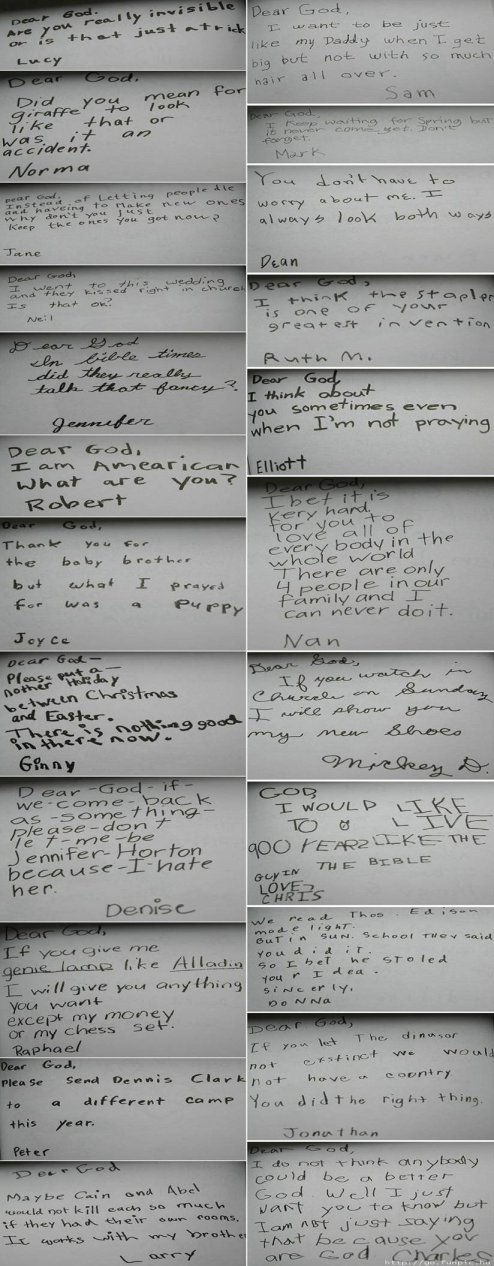 Dear God.
Are you really invisible
or is that just a trick
Lucy
Dear God,
Did you mean for
giraffe to look
like that or
was it an
accident.
Norma
Dear God.
Instead of letting people die
and haveing to make new ones
why don't you just
keep the ones you got now?
Jane
Dear God,
I went to this wedding
and they kissed right in church
Is that ok?
Neil
Dear God
In bible times
did they really
talk that fancy?
Jennifer
Dear God,
I am Amearican
What are you?
Robert
Dear God,
Thank you for
the baby brother
but what I prayed
for was a puppy
Joyce
Dear God—
Please put a—
nother Holiday
between Christmas
and Easter.
There is nothing good
in there now.
Ginny
Dear-God-if-
we-come-back
as-something-
please-don't
let-me-be
Jennifer-Horton
because-I-hate
her.
Denise
Dear God,
If you give me
genie lamp like Alladin
I will give you anything
you want
except my money
or my chess set.
Raphael
Dear God,
Please Send Dennis Clark
to a different camp
this year.
Peter
Dear God
Maybe Cain and Abel
would not kill each so much
if they had their own rooms.
It works with my brother
Larry
Dear God,
I want to be just
like my Daddy when I get
big but not with so much
hair all over.
Sam
Dear God,
I keep waiting for Spring but
is never come yet. Don't
forget.
Mark
You don't have to
worry about me. I
always look both ways
Dean
Dear God,
I think the stapler
is one of your
greatest invention
Ruth M.
Dear God
I think about
you sometimes even
when I'm not praying
Elliott
Dear God,
I bet it is
very hard
for you to
love all of
every body in the
whole world
There are only
4 people in our
family and I
can never do it.
Nan
Dear God,
If you watch in
Church on Sunday
I will show you
my new Shoes
Mickey D.
GOD,
I WOULD LIKE
TO LIVE
900 YEARS LIKE THE
GUY IN THE BIBLE
LOVE,
CHRIS
We read Thos. Edison
made light.
But in Sun. School they said
you did it.
So I bet he stoled
your Idea.
Sincerly,
Donna
Dear God,
If you let The dinasor
not exstinct we would
not have a country
You did the right thing.
Jonathan
Dear God,
I do not think anybody
could be a better
God. Well I just
want you to know but
I am not just saying
that because you
are God Charles